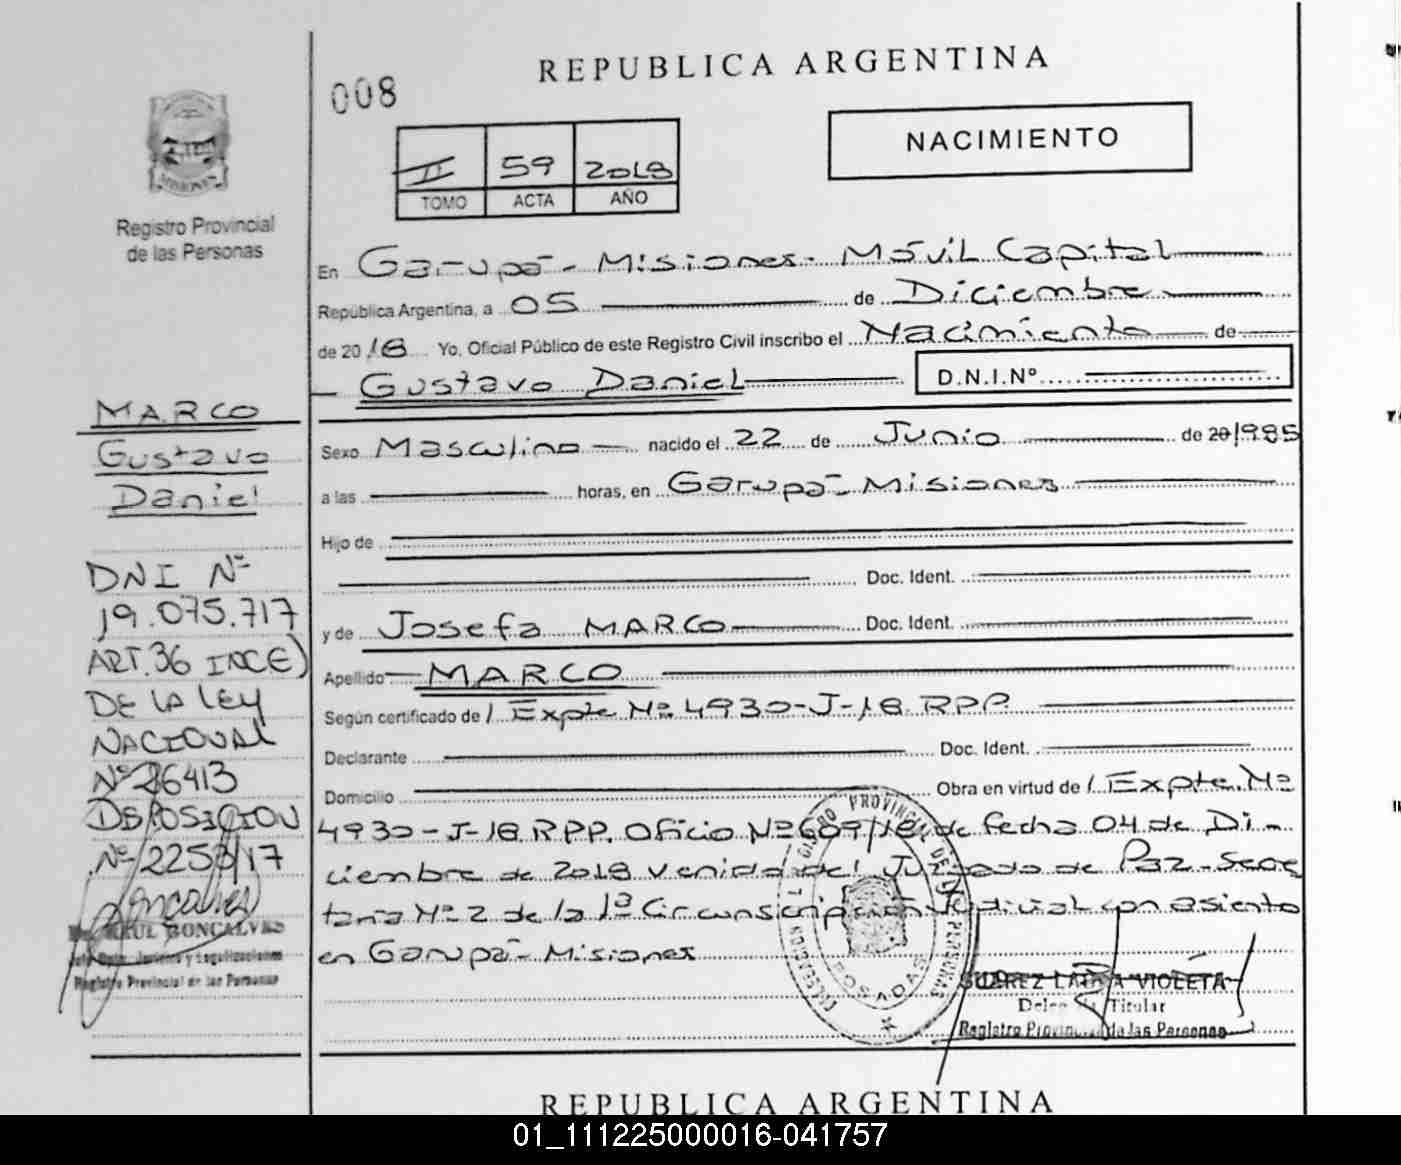 REPUBLICA ARGENTINA
008
NACIMIENTO
II 59 2018
TOMO ACTA AÑO
MISIONES
Registro Provincial
de las Personas
En Garupá - Misiones - Móvil Capital
República Argentina, a 05 de Diciembre
de 20 18 Yo, Oficial Público de este Registro Civil inscribo el Nacimiento de
Gustavo Daniel D.N.I.Nº
Sexo Masculino nacido el 22 de Junio de 20 1985
a las horas, en Garupá - Misiones
Hijo de
Doc. Ident.
y de Josefa MARCO Doc. Ident.
Apellido MARCO
Según certificado de / Expte Nº 4930-J-18 RPP
Declarante Doc. Ident.
Domicilio Obra en virtud de / Expte. Nº
4930-J-18 RPP. Oficio Nº 609/18 de fecha 04 de Di-
ciembre de 2018 venido del Juzgado de Paz - Secre
taria Nº 2 de la 1ª Circunscripción Judicial con asiento
en Garupá - Misiones
MARCO
Gustavo
Daniel
DNI Nº
19.075.717
ART. 36 INC E)
DE LA LEY
NACIONAL
Nº 26413
DISPOSICION
Nº 2258/17
RAUL GONCALVES
Registro Provincial de las Personas
POSADAS
SUAREZ LAURA VIOLETA
Titular
Registro Provincial de las Personas
REPUBLICA ARGENTINA
01_111225000016-041757